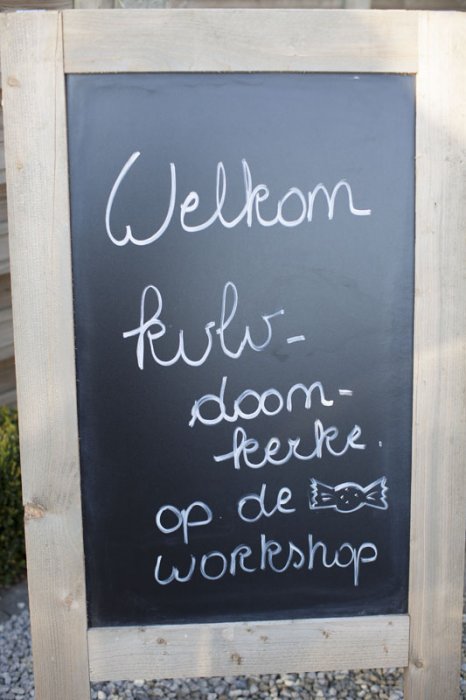 Welkom
kvlv-
doom-
kerke.
op de
workshop